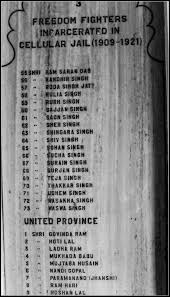 3
FREEDOM FIGHTERS
INCARCERATED IN
CELLULAR JAIL (1909-1921)
55 SHRI RAM SARAN DAS
56 " RANDHIR SINGH
57 " RODA SINGH
58 " RULIA SINGH
59 " RURH SINGH
60 " SAJJAN SINGH
61 " SAON SINGH
62 " SHER SINGH
63 " SHINGARA SINGH
64 " SHIV SINGH
65 " SOHAN SINGH
66 " SUCHA SINGH
67 " SURAIN SINGH
68 " SURJEN SINGH
69 " TEJA SINGH
70 " THAKKAR SINGH
71 " UDHEM SINGH
72 " WASAKHA SINGH
73 " WASWA SINGH
UNITED PROVINCE
1 SHRI GOVINDA RAM
2 " HOTI LAL
3 " LADHA RAM
4 " MUKHADA BABU
5 " MUJTABA HUSAIN
6 " NANDI GOPAL
7 " PARAMANAND (JHANSHI)
8 " RAM HARI
9 " ROSHAN LAL